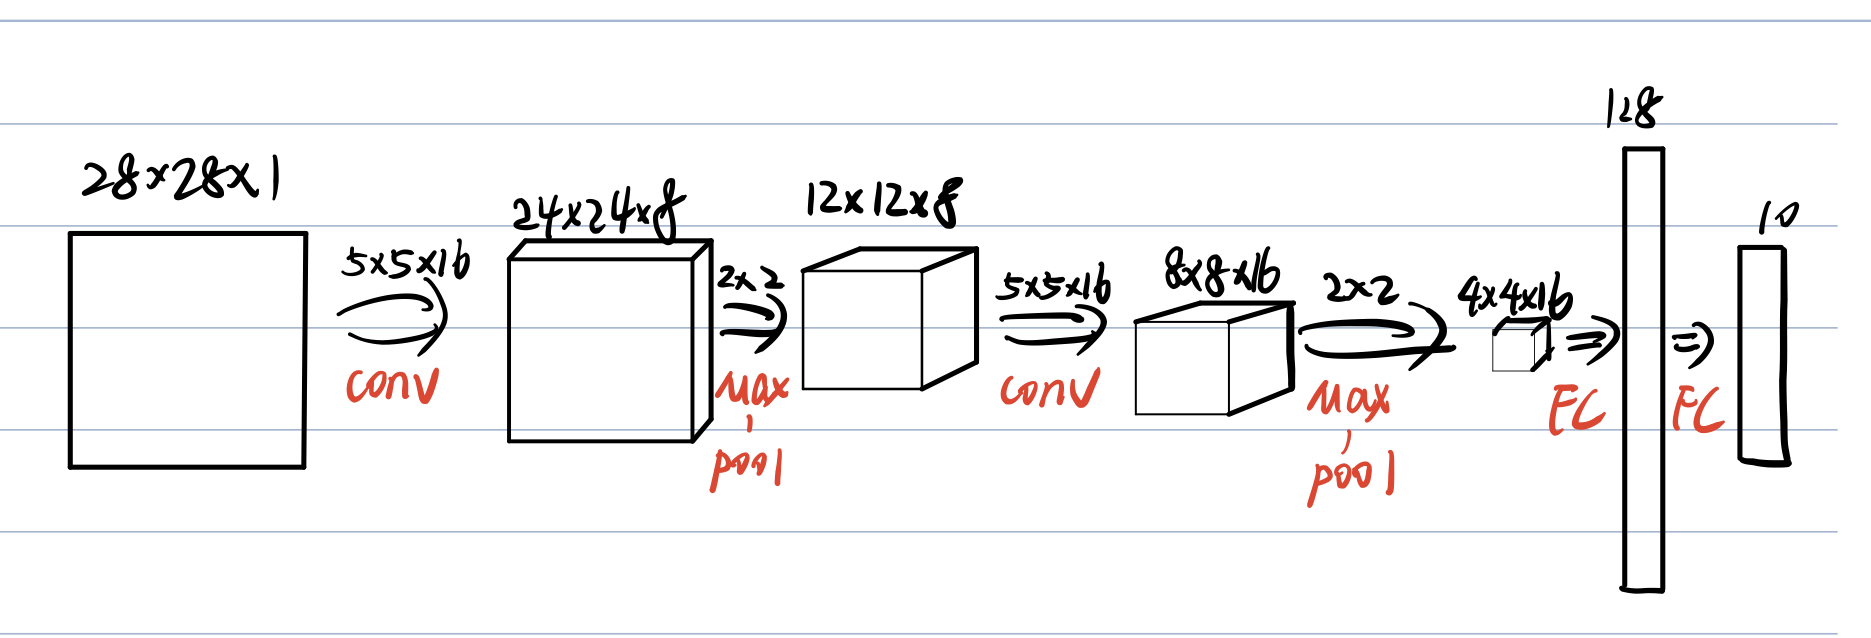 28×28×1
5×5×16
conv
24×24×8
2×2
Max
pool
12×12×8
5×5×16
conv
8×8×16
2×2
Max
pool
4×4×16
FC
128
FC
10